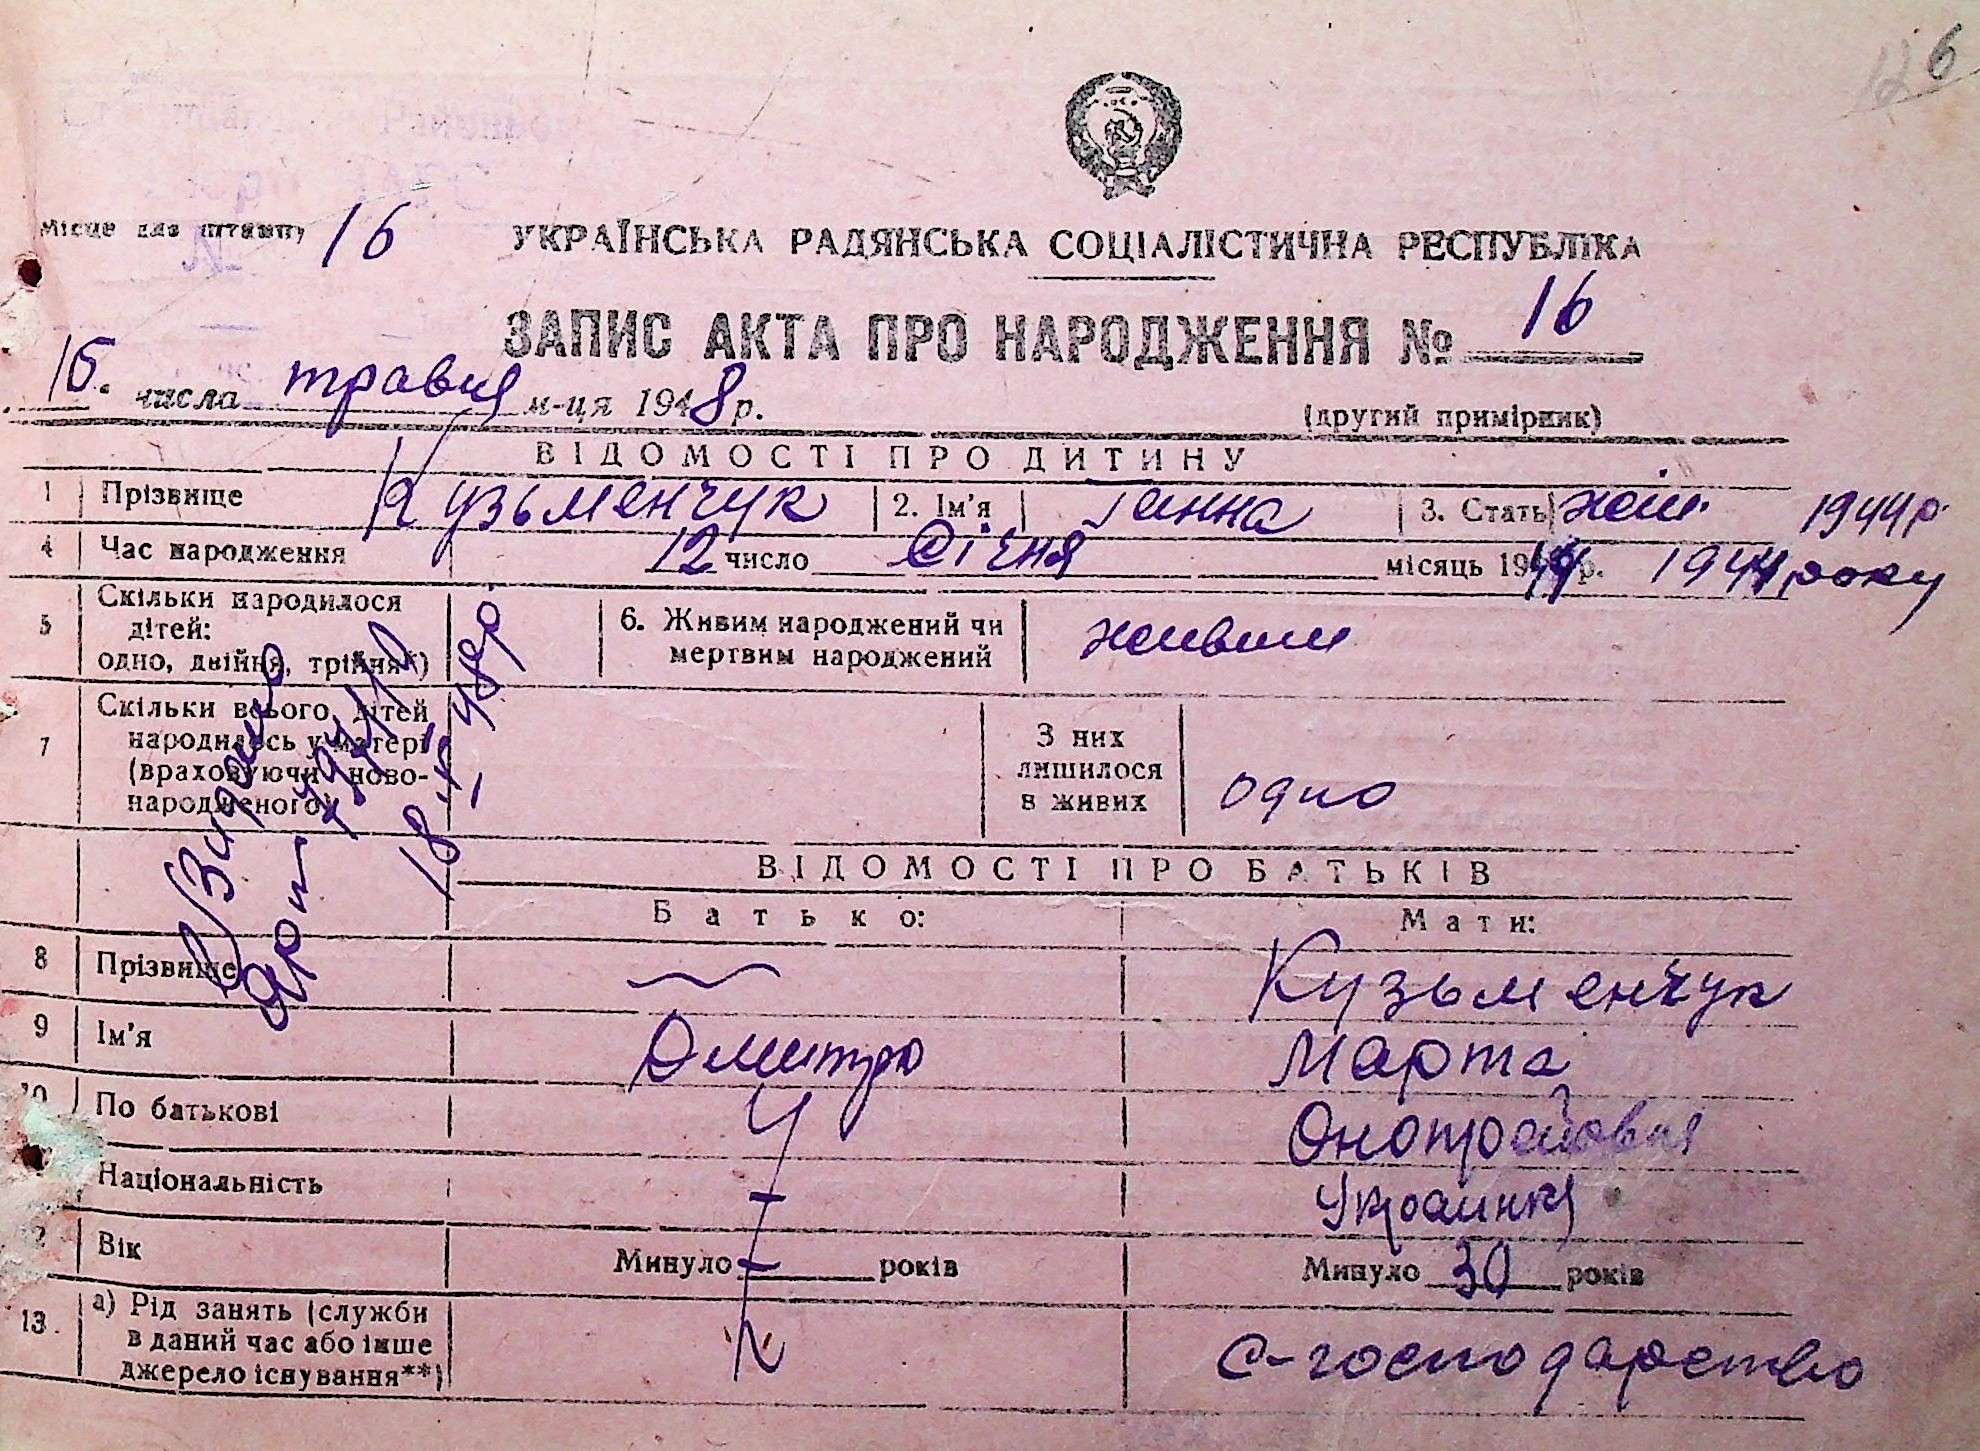 126
Місце для штампу 16
УКРАЇНСЬКА РАДЯНСЬКА СОЦІАЛІСТИЧНА РЕСПУБЛІКА
ЗАПИС АКТА ПРО НАРОДЖЕННЯ № 16
15. числа травня м-ця 1948 р.
(другий примірник)
ВІДОМОСТІ ПРО ДИТИНУ
1 Прізвище Кузьменчук 2. Ім'я Ганна 3. Стать жін. 1944 р.
4 Час народження 12 число Січня місяць 1944 р. 1944 року
5 Скільки народилося
дітей:
одно, двійня, трійня*)
6. Живим народжений чи
мертвим народжений живим
7 Скільки всього дітей
народилось у матері
(враховуючи ново-
народженого)
З них
лишилося
в живих одно
18 48р
ВІДОМОСТІ ПРО БАТЬКІВ
Батько: Мати:
8 Прізвище Кузьменчук
9 Ім'я Дмитро Марта
10 По батькові
Національність Украинка
Вік Минуло років Минуло 30 років
13. а) Рід занять (служби
в даний час або інше
джерело існування**) с-господарство